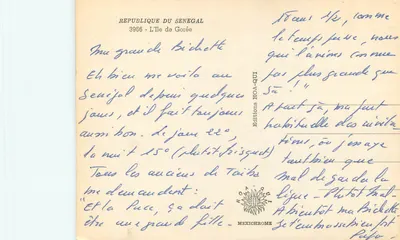 REPUBLIQUE DU SENEGAL
3906 - L'Ile de Gorée
Ma grande Bichette
Eh bien me voilà au
Sénégal depuis quelques
jours, et il fait toujours
aussi bon. le jour 22°,
la nuit 15° (plutôt frisquet)
Tous les anciens de
me demandent:
"Et la Puce, ça doit
être une grande fille-
Editions HOA-QUI
MEXICHROME
ans 1/2, comme
le temps passe, nous
qui l'avions connue
pas plus grande que
ça!"
A part ça, ma part
habituelle des invita-
tions, où j'essaye
tant bien que
mal de garder la
ligne - Plutôt mal-
A bientôt ma Bichette
Je t'embrasse bien fort